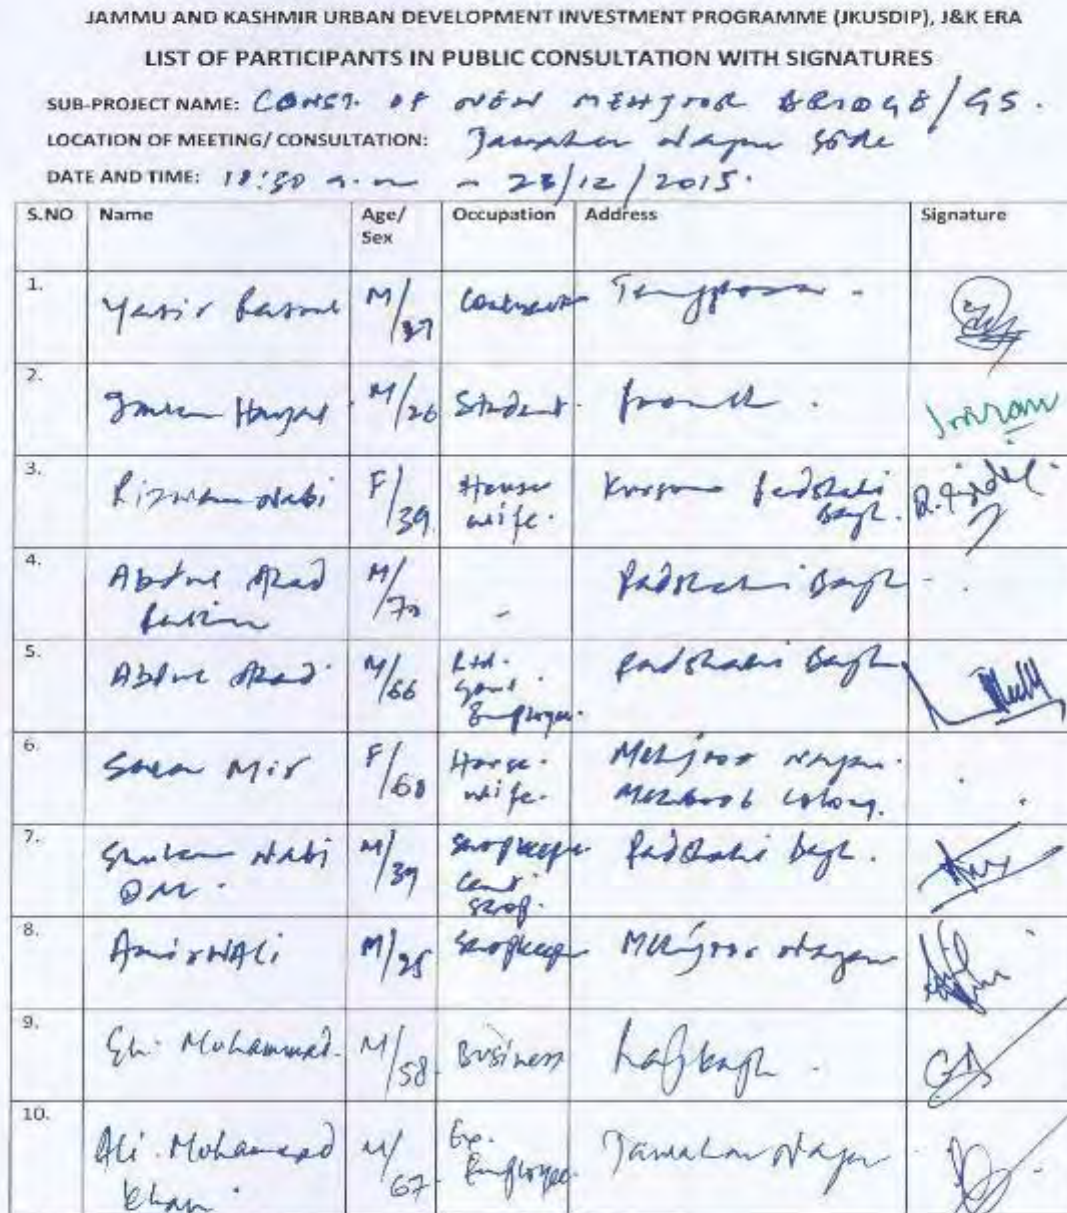 JAMMU AND KASHMIR URBAN DEVELOPMENT INVESTMENT PROGRAMME (JKUSDIP), J&K ERA
LIST OF PARTICIPANTS IN PUBLIC CONSULTATION WITH SIGNATURES
SUB-PROJECT NAME: CONST. OF NEW MEHJOOR BRIDGE/GS.
LOCATION OF MEETING/ CONSULTATION: Jawahar Nagar Side
DATE AND TIME: a.m - 23/12/2015.
S.NO Name Age/ Sex Occupation Address Signature
1. Yasir Rasool M/37 Contractor
2. M/26 Student. Imran
3. Nabi F/39 House wife. Padshahi Bagh.
4. Abdul Ahad M/70 - Padshahi Bagh
5. Abdul Ahad M/66 Rtd. Govt. Employee. Padshahi Bagh
6. Mir F/60 House wife. Mehjoor Nagar. Mehboob Colony.
7. Ghulam Nabi Dar. M/39 Shopkeeper Padshahi Bagh.
8. Amir Ali M/25 Shopkeeper Mehjoor Nagar
9. Gh. Muhammad. M/58 Business
10. Ali Mohammad Khan M/67 Employee. Jawahar Nagar